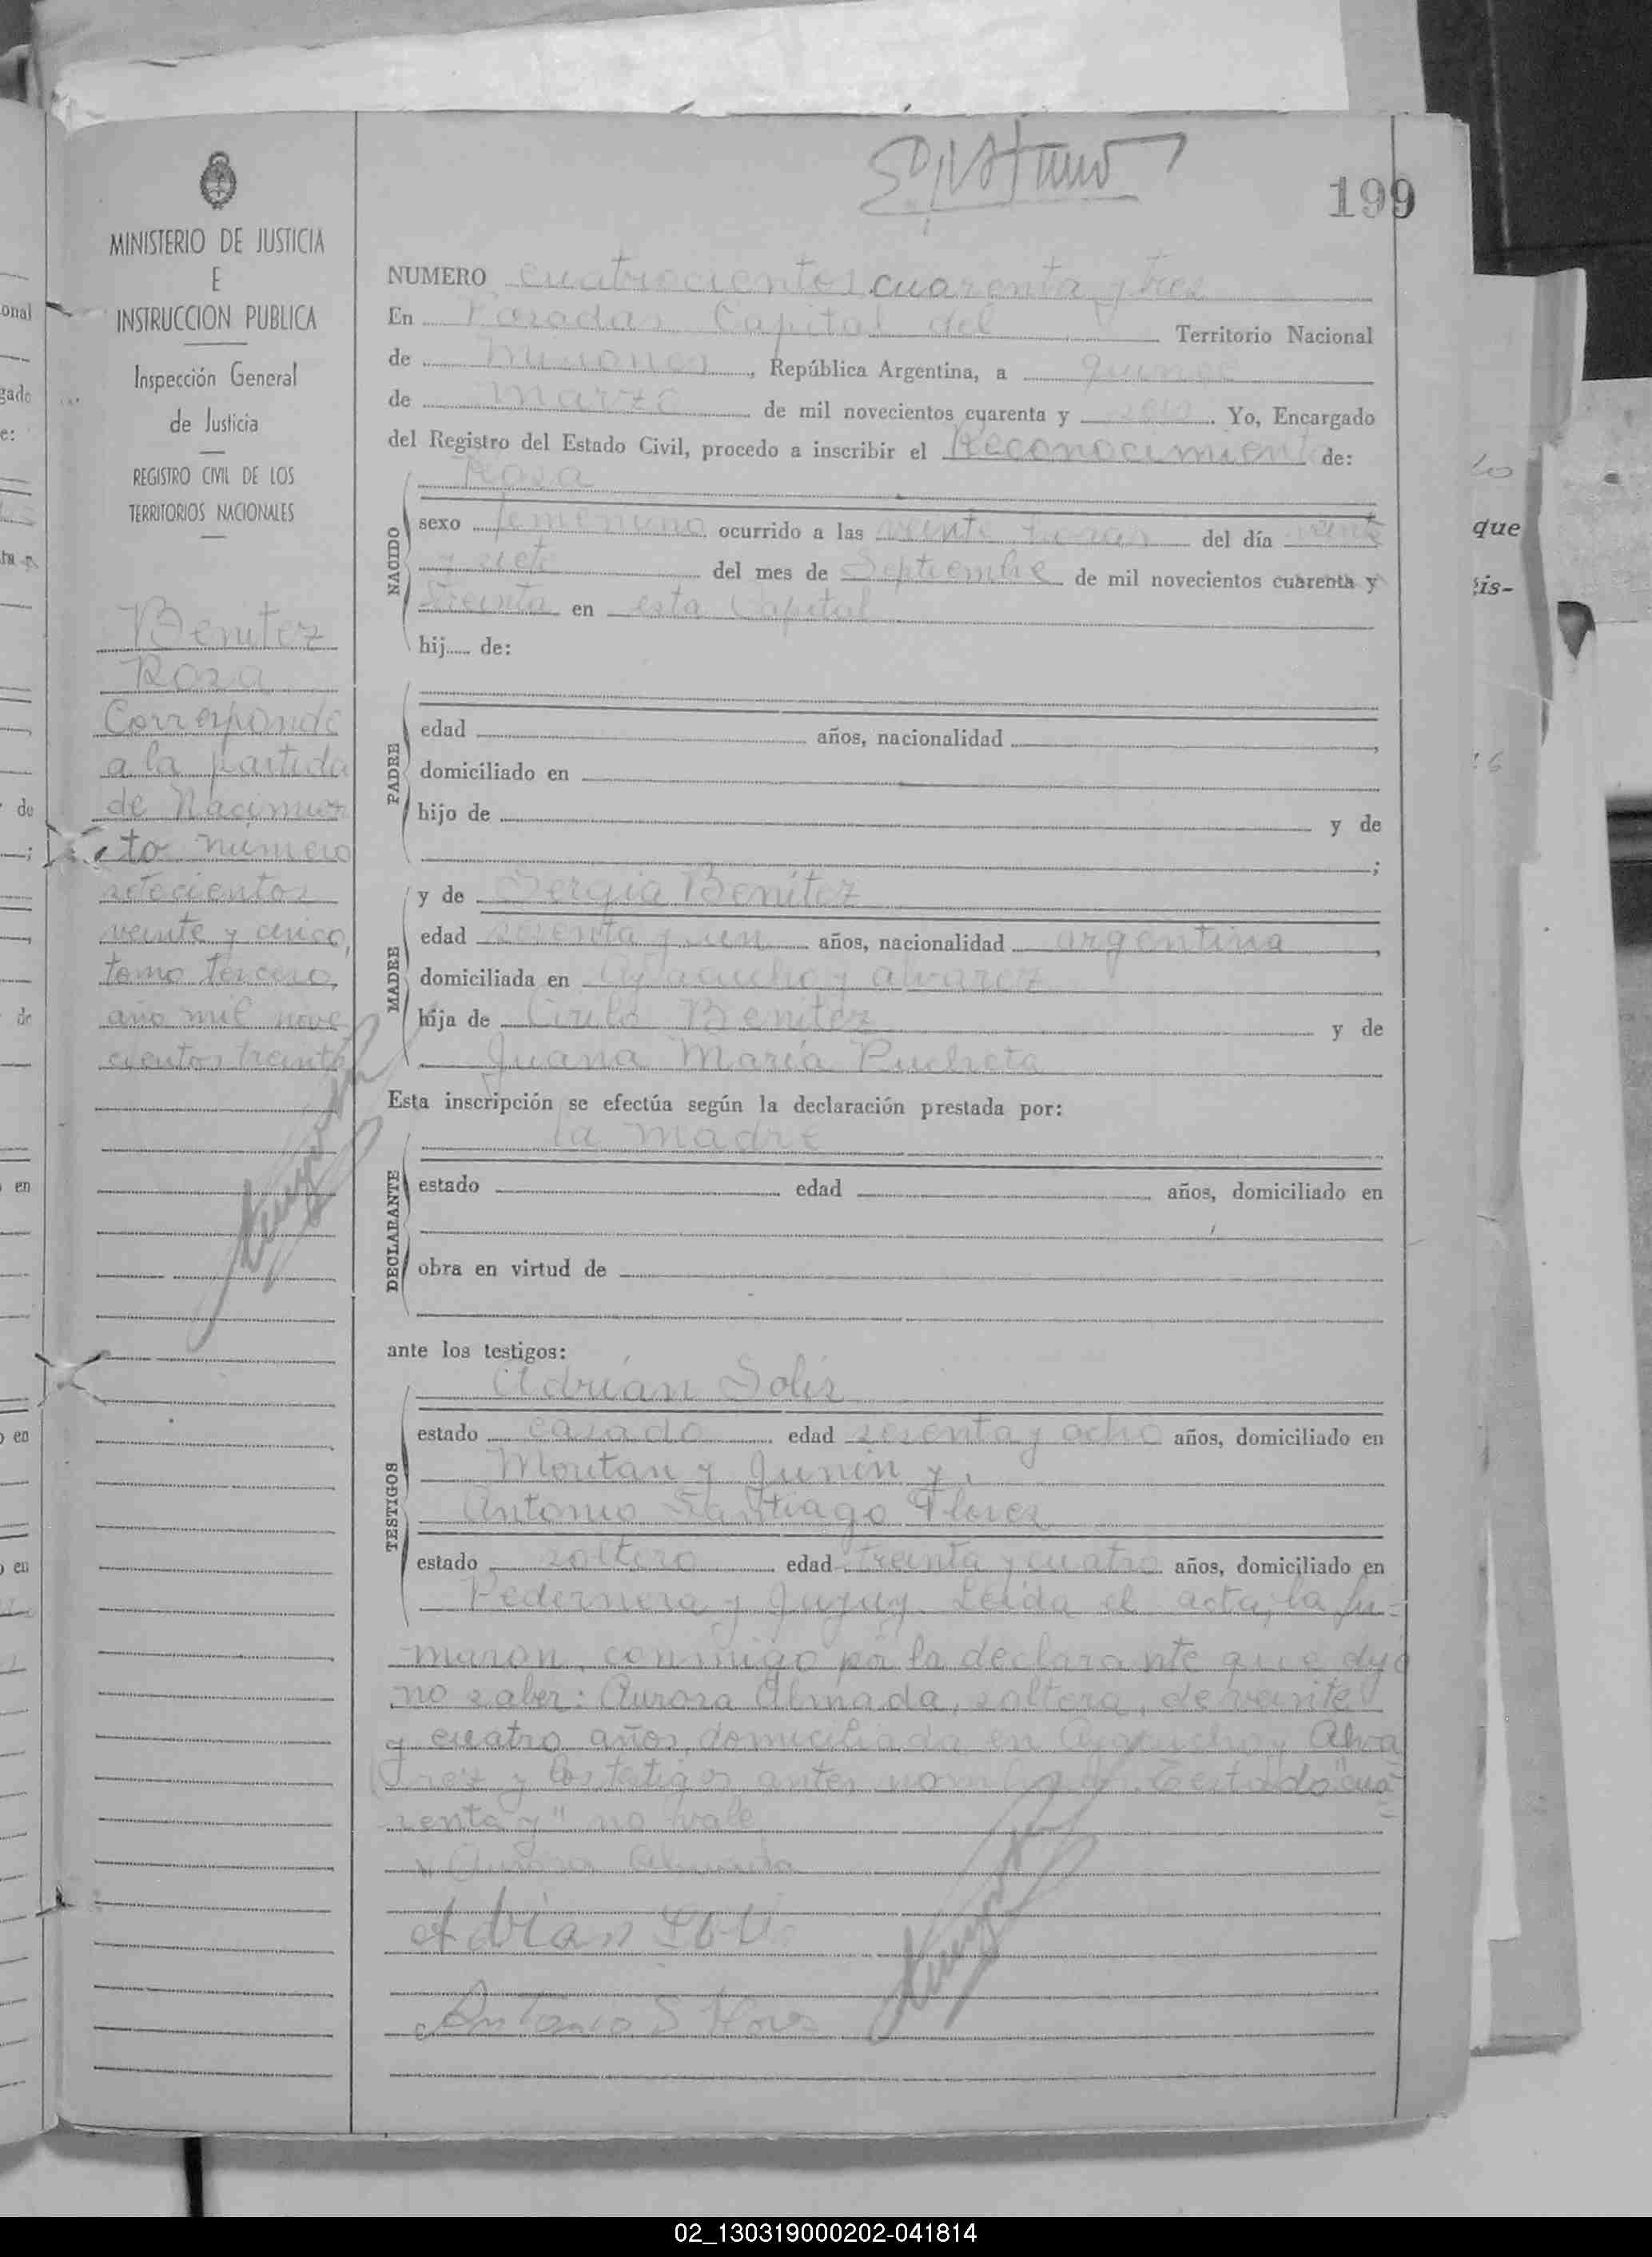 199
MINISTERIO DE JUSTICIA
E
INSTRUCCION PUBLICA
Inspección General
de Justicia
REGISTRO CIVIL DE LOS
TERRITORIOS NACIONALES
Benitez
Rosa
Corresponde
a la partida
de Nacimien
to número
setecientos
veinte y cinco,
tomo tercero,
año mil nove
cientos treinta
NUMERO cuatrocientos cuarenta y tres
En Posadas Capital del Territorio Nacional
de Misiones, República Argentina, a quince
de Marzo de mil novecientos cuarenta y seis. Yo, Encargado
del Registro del Estado Civil, procedo a inscribir el Reconocimiento de:
Rosa
NACIDO
sexo femenino ocurrido a las veinte horas del día veinte
y siete del mes de Septiembre de mil novecientos cuarenta y
treinta en esta Capital
hij..... de:
PADRE
edad años, nacionalidad ,
domiciliado en
hijo de y de
;
MADRE
y de Sergia Benitez
edad sesenta y un años, nacionalidad argentina,
domiciliada en Ayacucho y Alvarez
hija de Cirilo Benitez y de
Juana María Pucheta
Esta inscripción se efectúa según la declaración prestada por:
la madre
DECLARANTE
estado edad años, domiciliado en
obra en virtud de
ante los testigos:
TESTIGOS
Adrián Solis
estado casado edad sesenta y ocho años, domiciliado en
Moritan y Junin y.
Antonio Santiago Flores
estado soltero edad treinta y cuatro años, domiciliado en
Pedernera y Jujuy. Leída el acta, la fir=
maron, conmigo por la declarante que dijo
no saber: Aurora Almada, soltera, de veinte
y cuatro años, domiciliada en Ayacucho y Alva
rez y los testigos antes nombrados. Testado "cua=
renta y" no vale
Aurora Almada
Adrian Solis
Antonio S Flores
que
is-
onal
gado
e:
de
de
en
en
en
02_130319000202-041814